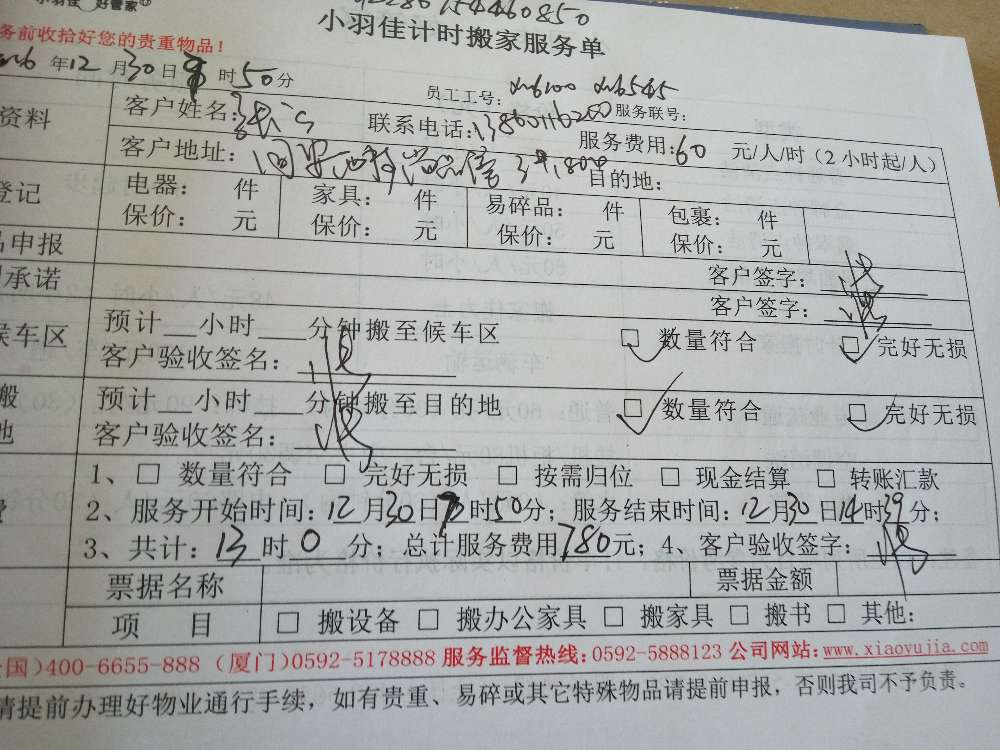 小羽佳 好管家
154460850
小羽佳计时搬家服务单
务前收拾好您的贵重物品！
年12月30日 时50分
员工工号：xm6100 xm6545
资料 客户姓名： 联系电话： 服务联号：
客户地址： 服务费用：60 元/人/时（2小时起/人）
目的地：
登记 电器： 件 家具： 件 易碎品： 件 包裹： 件
保价： 元 保价： 元 保价： 元 保价： 元
申报 客户签字：
承诺 客户签字：
候车区 预计__小时__分钟搬至候车区 □ 数量符合 □ 完好无损
客户验收签名：
搬 预计__小时__分钟搬至目的地 □ 数量符合 □ 完好无损
地 客户验收签名：
1、□ 数量符合 □ 完好无损 □ 按需归位 □ 现金结算 □ 转账汇款
2、服务开始时间：12月30日 时50分；服务结束时间：12月30日14时39分；
费 3、共计：13时0分；总计服务费用780元；4、客户验收签字：
票据名称 票据金额
项 目 □ 搬设备 □ 搬办公家具 □ 搬家具 □ 搬书 □ 其他：
国）400-6655-888（厦门）0592-5178888 服务监督热线：0592-5888123 公司网站：www.xiaoyujia.com
请提前办理好物业通行手续，如有贵重、易碎或其它特殊物品请提前申报，否则我司不予负责。